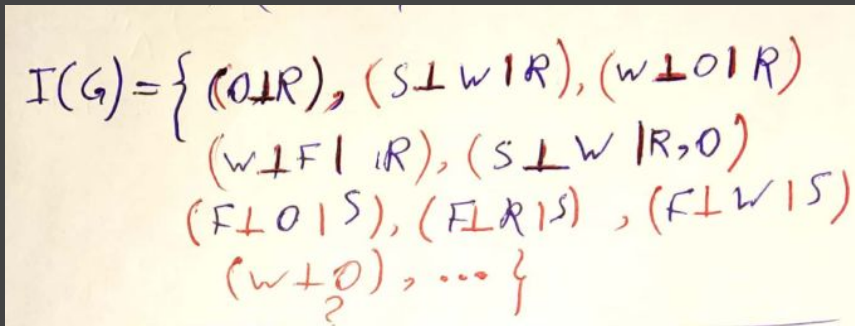 I(G)={(O⊥R), (S⊥W|R), (W⊥O|R)
(W⊥F| R), (S⊥W|R,O)
(F⊥O|S), (F⊥R|S), (F⊥W|S)
(W⊥O), ...}
?